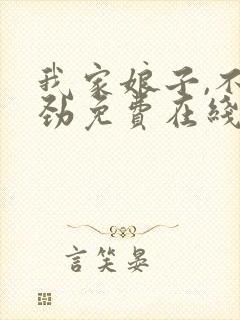 我家娘子,不
劲免费在线
言笑晏